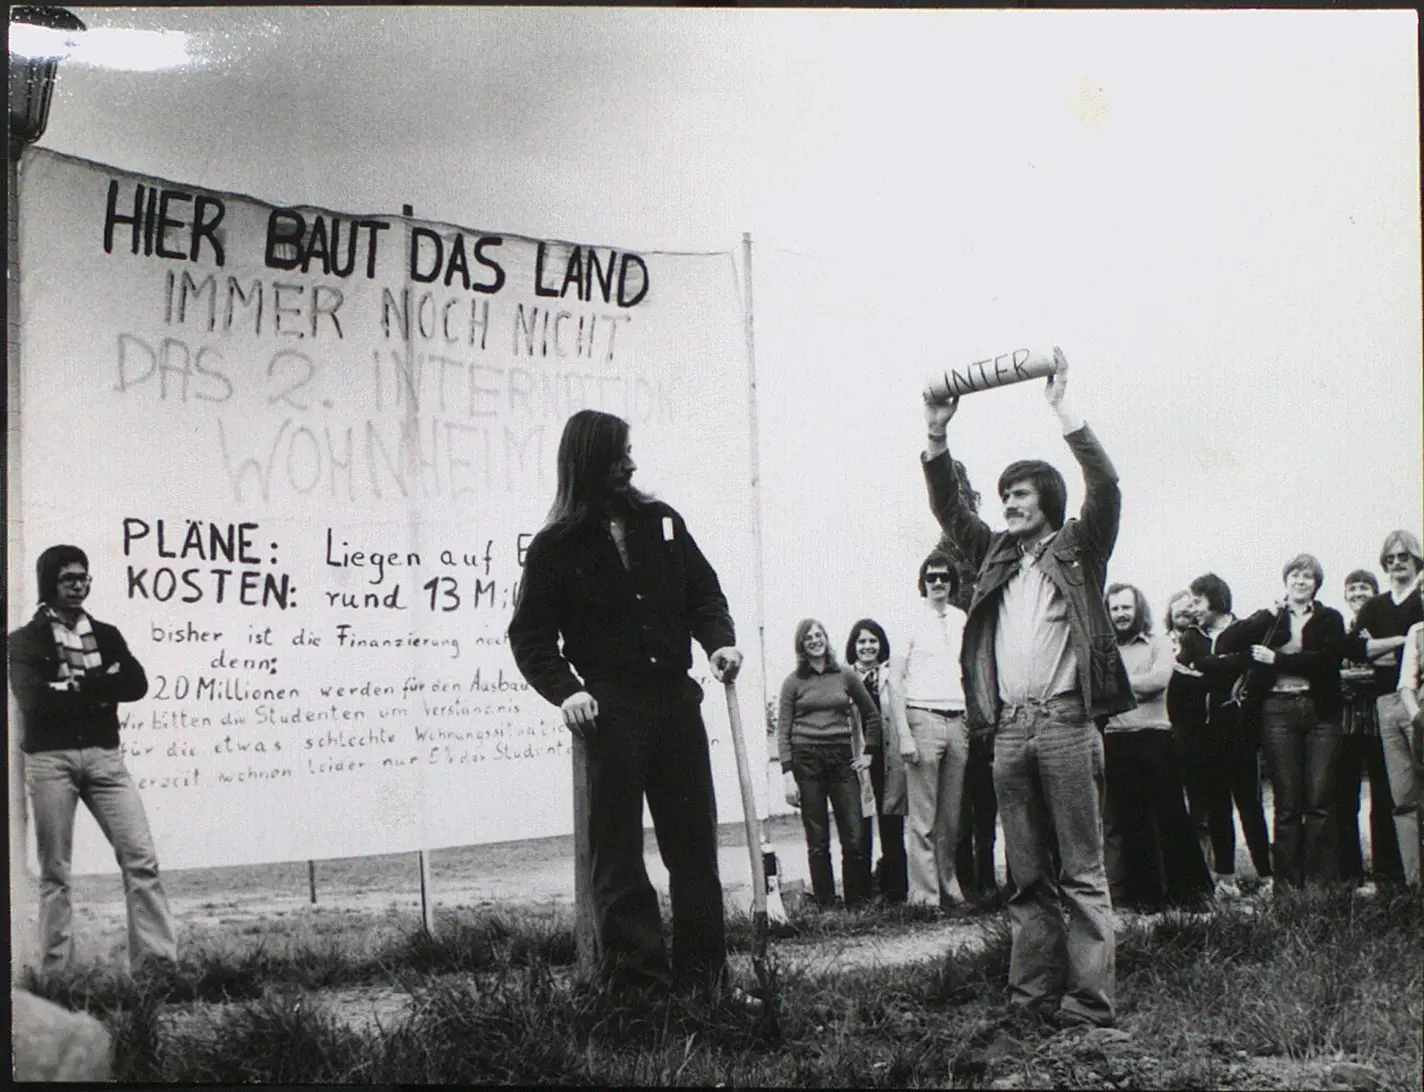 HIER BAUT DAS LAND
IMMER NOCH NICHT
DAS 2. INTERNATION
WOHNHEIM
PLÄNE: Liegen auf E
KOSTEN: rund 13 Mil
bisher ist die Finanzierung noch
denn:
20 Millionen werden für den Ausbau
Wir bitten die Studenten um Verständnis
für die etwas schlechte Wohnungssituatio
derzeit wohnen leider nur 5% der Studente
INTER